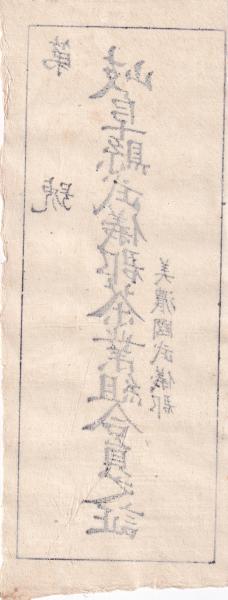 美濃國武儀郡
岐阜縣武儀郡茶業組合員之証
第　號